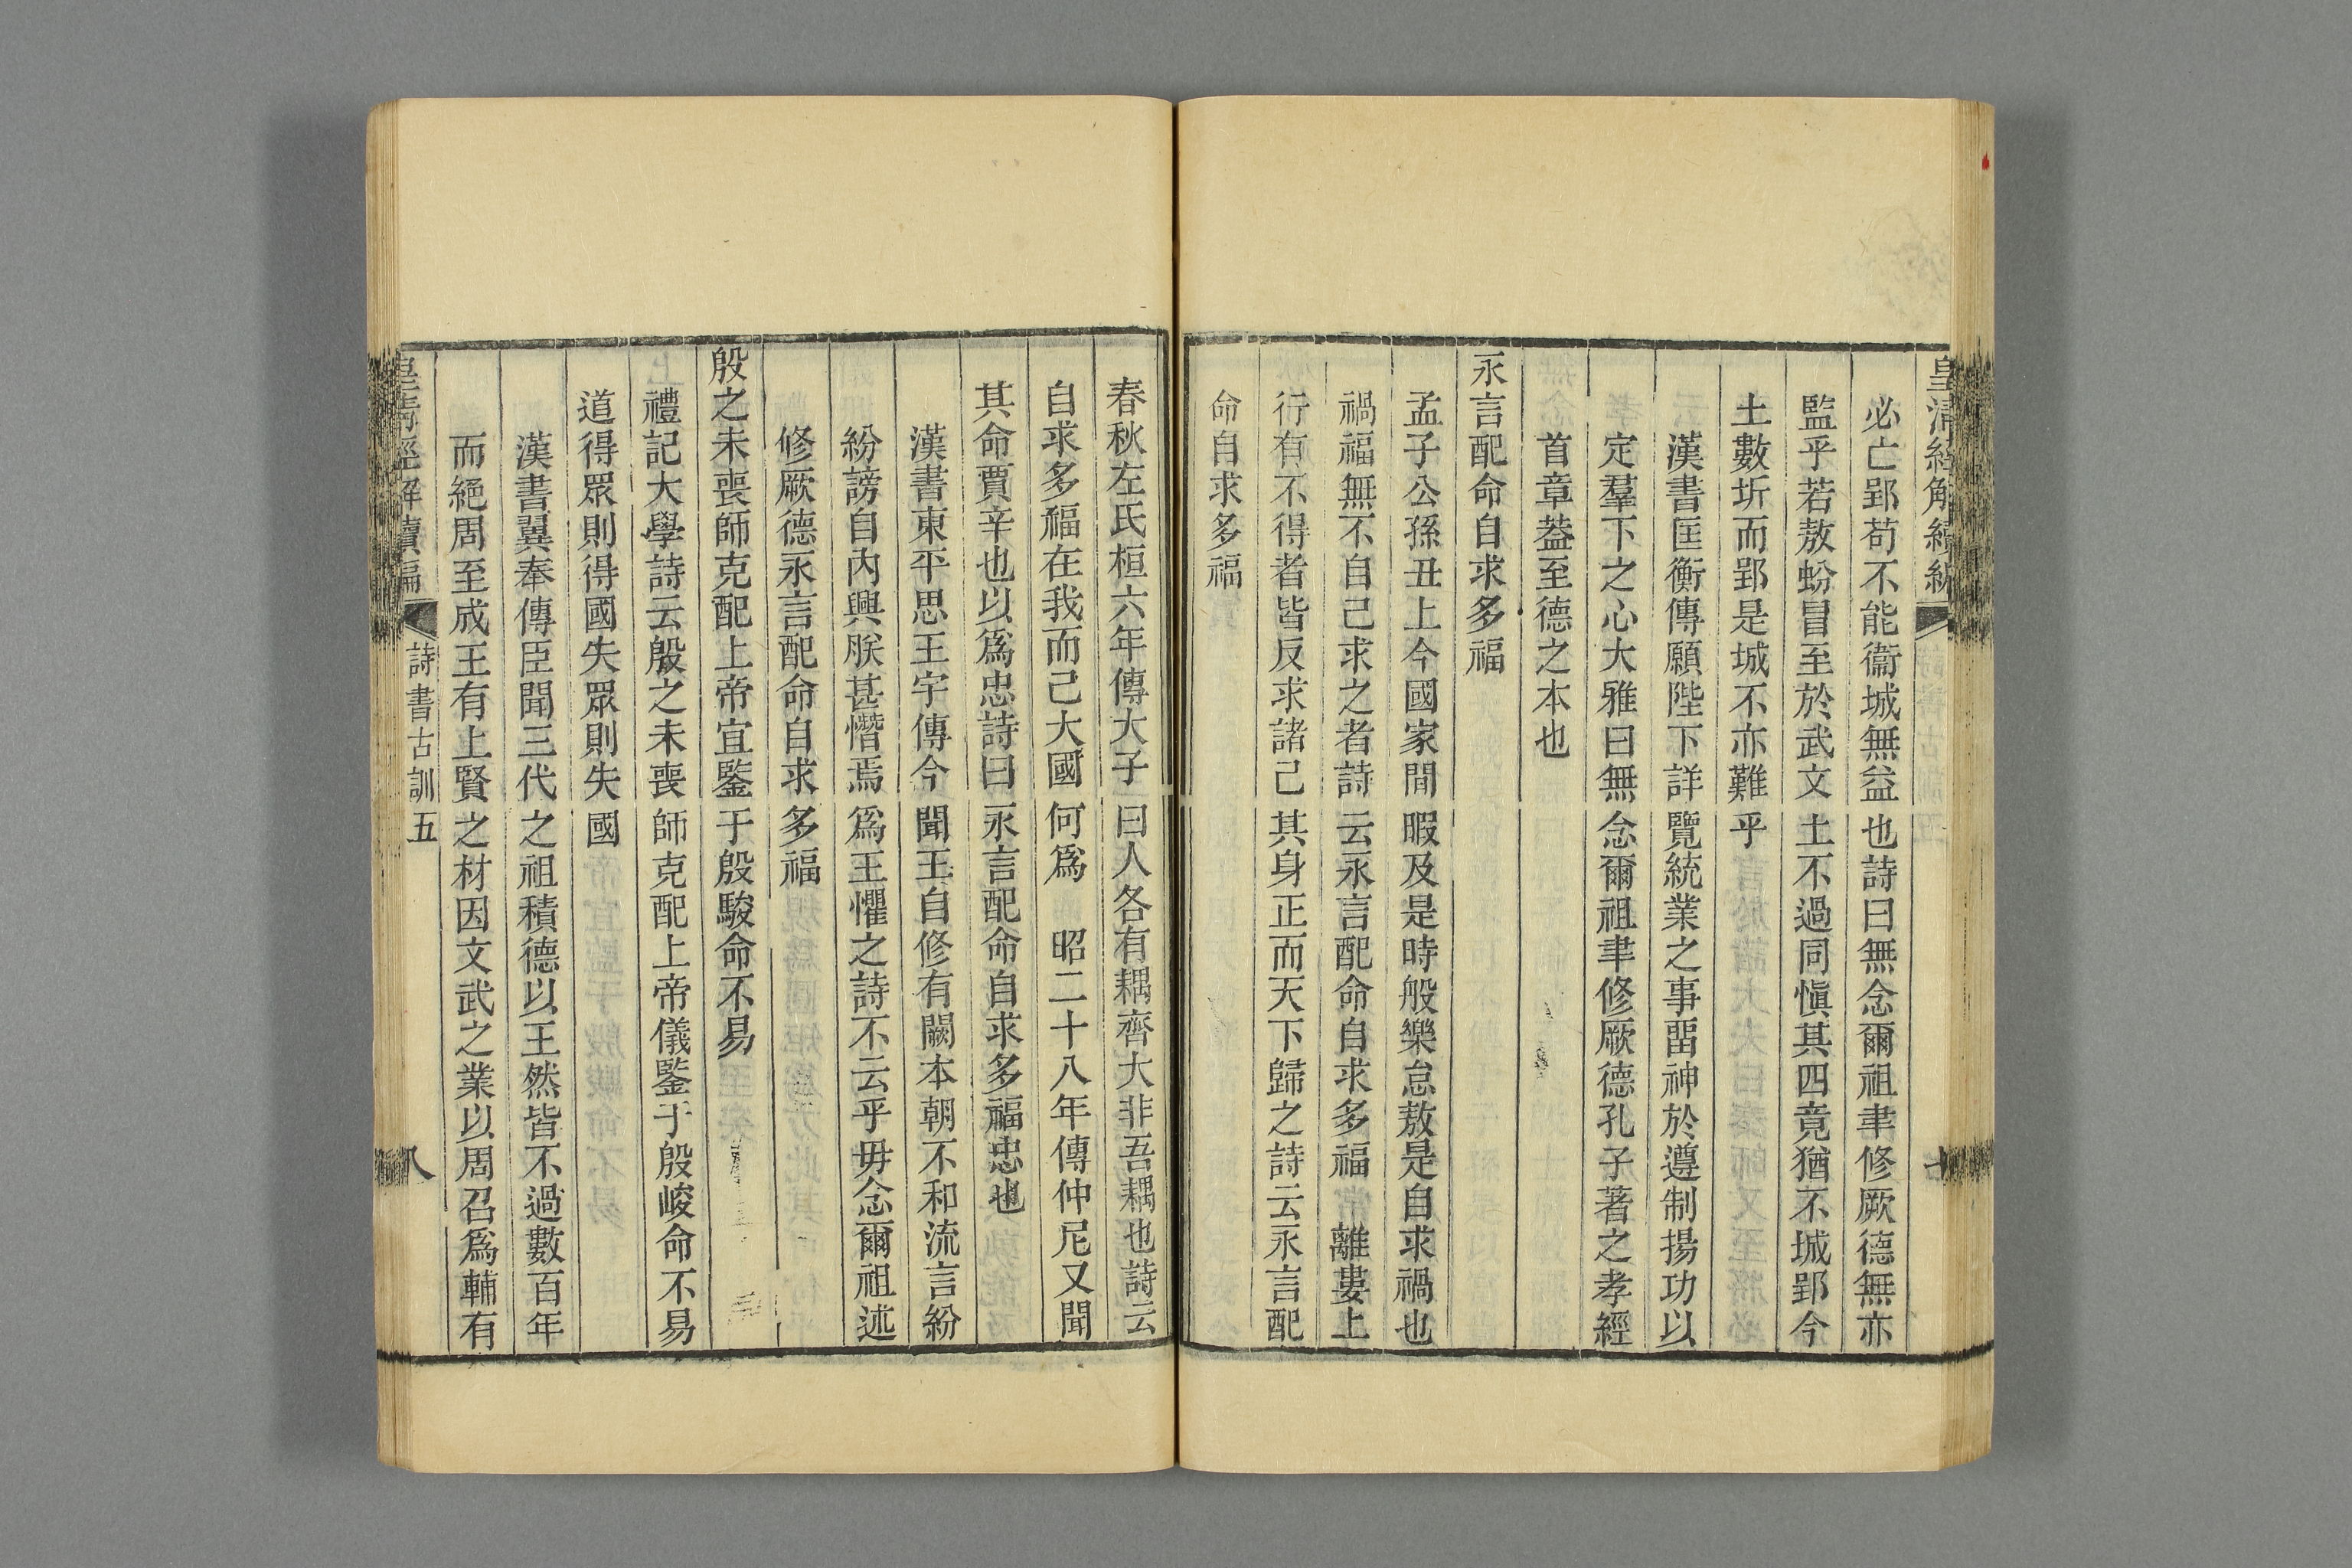 皇清經解續編
七
必亡郢苟不能衞城無益也詩曰無念爾祖聿修厥德無亦
監乎若敖蚡冒至於武文土不過同愼其四竟猶不城郢今
土數圻而郢是城不亦難乎
漢書匡衡傳願陛下詳覽統業之事畱神於遵制揚功以
定羣下之心大雅曰無念爾祖聿修厥德孔子著之孝經
首章葢至德之本也
永言配命自求多福
孟子公孫丑上今國家閒暇及是時般樂怠敖是自求禍也
禍福無不自己求之者詩云永言配命自求多福 離婁上
行有不得者皆反求諸己其身正而天下歸之詩云永言配
命自求多福
春秋左氏桓六年傳大子曰人各有耦齊大非吾耦也詩云
自求多福在我而己大國何爲 昭二十八年傳仲尼又聞
其命賈辛也以爲忠詩曰永言配命自求多福忠也
漢書東平思王宇傳今聞王自修有闕本朝不和流言紛
紛謗自內興朕甚憯焉爲王懼之詩不云乎毋念爾祖述
修厥德永言配命自求多福
殷之未喪師克配上帝宜鑒于殷駿命不易
禮記大學詩云殷之未喪師克配上帝儀鑒于殷峻命不易
道得眾則得國失眾則失國
漢書翼奉傳臣聞三代之祖積德以王然皆不過數百年
而絕周至成王有上賢之材因文武之業以周召爲輔有
皇清經解續編
詩書古訓五
八